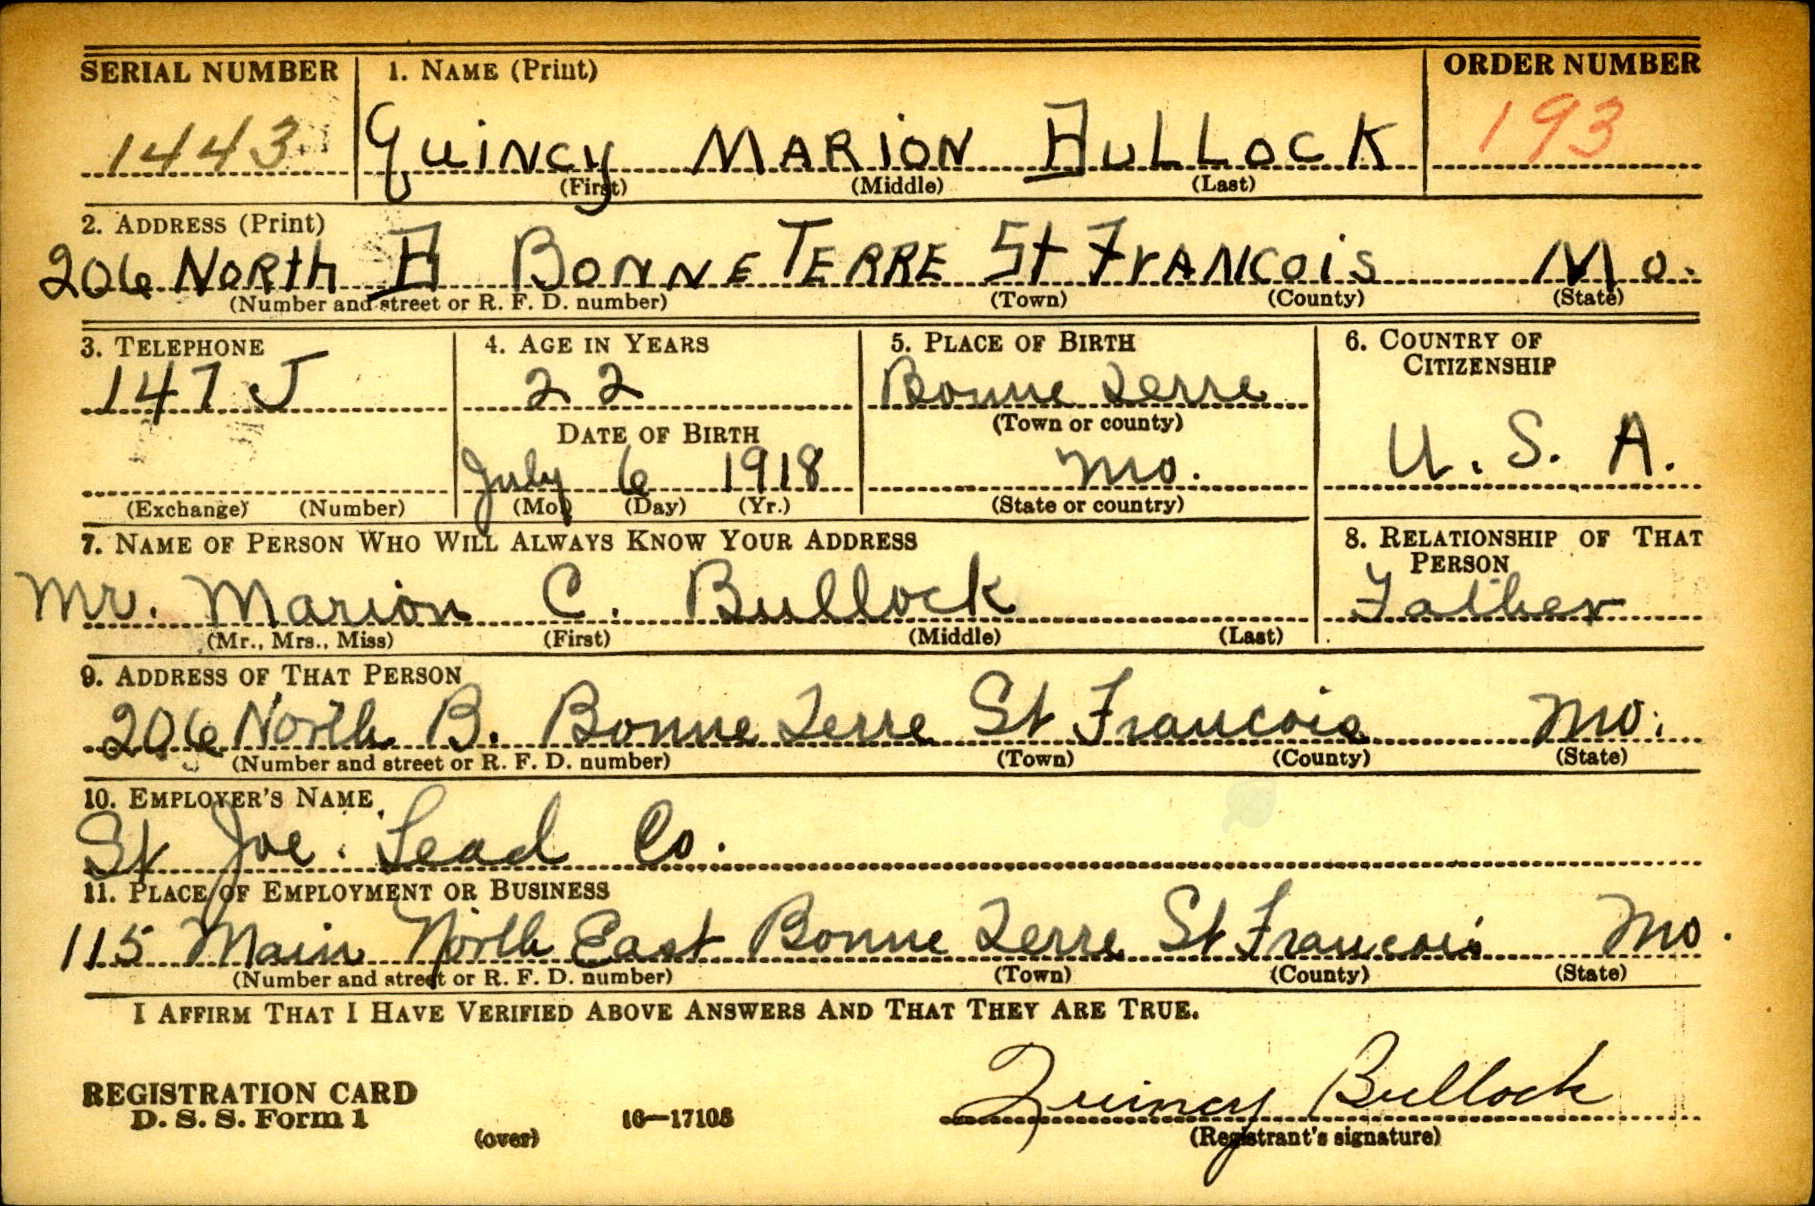 SERIAL NUMBER 1. NAME (Print) ORDER NUMBER
1443 Quincy MARION BULLOCK 193
(First) (Middle) (Last)
2. ADDRESS (Print)
206 NORTH B BONNE TERRE St FRANCOIS Mo.
(Number and street or R. F. D. number) (Town) (County) (State)
3. TELEPHONE 4. AGE IN YEARS 5. PLACE OF BIRTH 6. COUNTRY OF CITIZENSHIP
147 J 22 Bonne Terre
DATE OF BIRTH (Town or county)
July 6 1918 Mo. U. S. A.
(Exchange) (Number) (Mo.) (Day) (Yr.) (State or country)
7. NAME OF PERSON WHO WILL ALWAYS KNOW YOUR ADDRESS 8. RELATIONSHIP OF THAT PERSON
Mr. Marion C. Bullock Father
(Mr., Mrs., Miss) (First) (Middle) (Last)
9. ADDRESS OF THAT PERSON
206 North B. Bonne Terre St Francois Mo.
(Number and street or R. F. D. number) (Town) (County) (State)
10. EMPLOYER'S NAME
St Joe. Lead Co.
11. PLACE OF EMPLOYMENT OR BUSINESS
115 Main North East Bonne Terre St Francois Mo.
(Number and street or R. F. D. number) (Town) (County) (State)
I AFFIRM THAT I HAVE VERIFIED ABOVE ANSWERS AND THAT THEY ARE TRUE.
REGISTRATION CARD Quincy Bullock
D. S. S. Form 1 (over) 16—17105 (Registrant's signature)